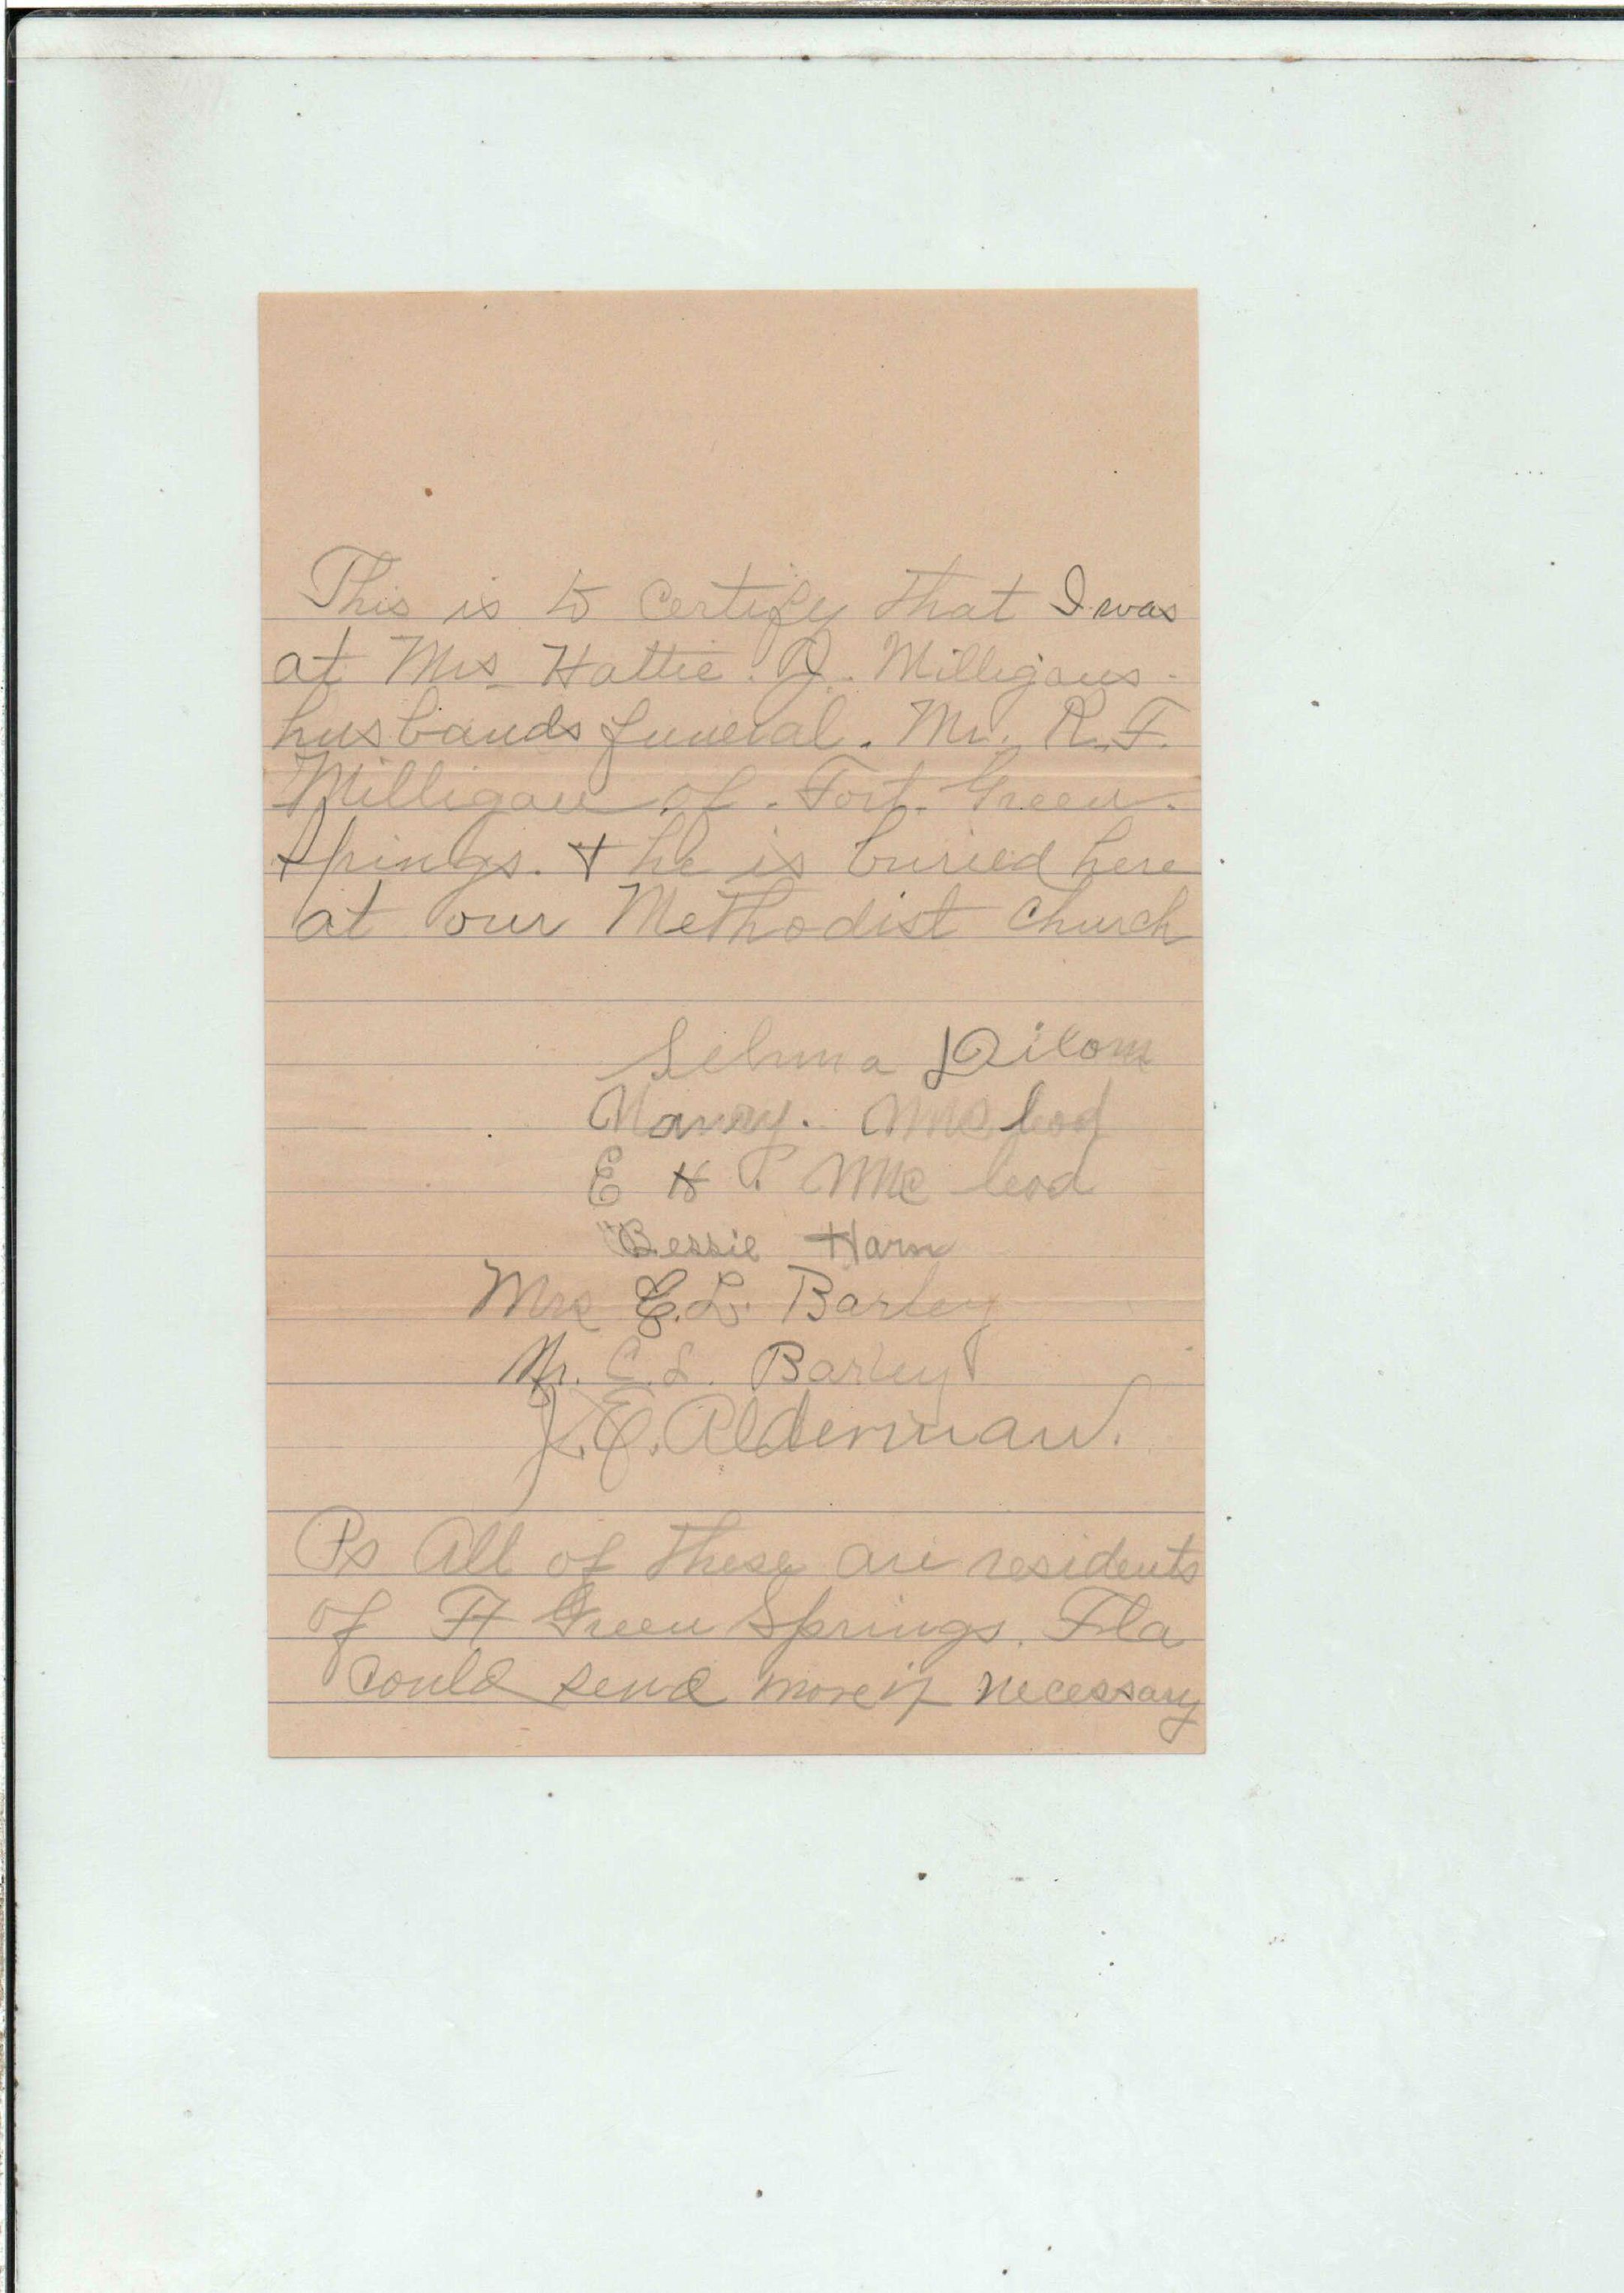 This is to certify that I was
at Mrs Hattie. J. Milligans
husbands funeral. Mr. R. F.
Milligan of. Fort. Green.
Springs. + he is buried here
at our Methodist Church
Selma
Nancy. Mc leod
E H Mc leod
Bessie Harn
Mrs C. L. Barley
Mr. C. L. Barley
J. E. Alderman.
Ps All of these are residents
of Ft Green Springs. Fla
Could send more if necessary